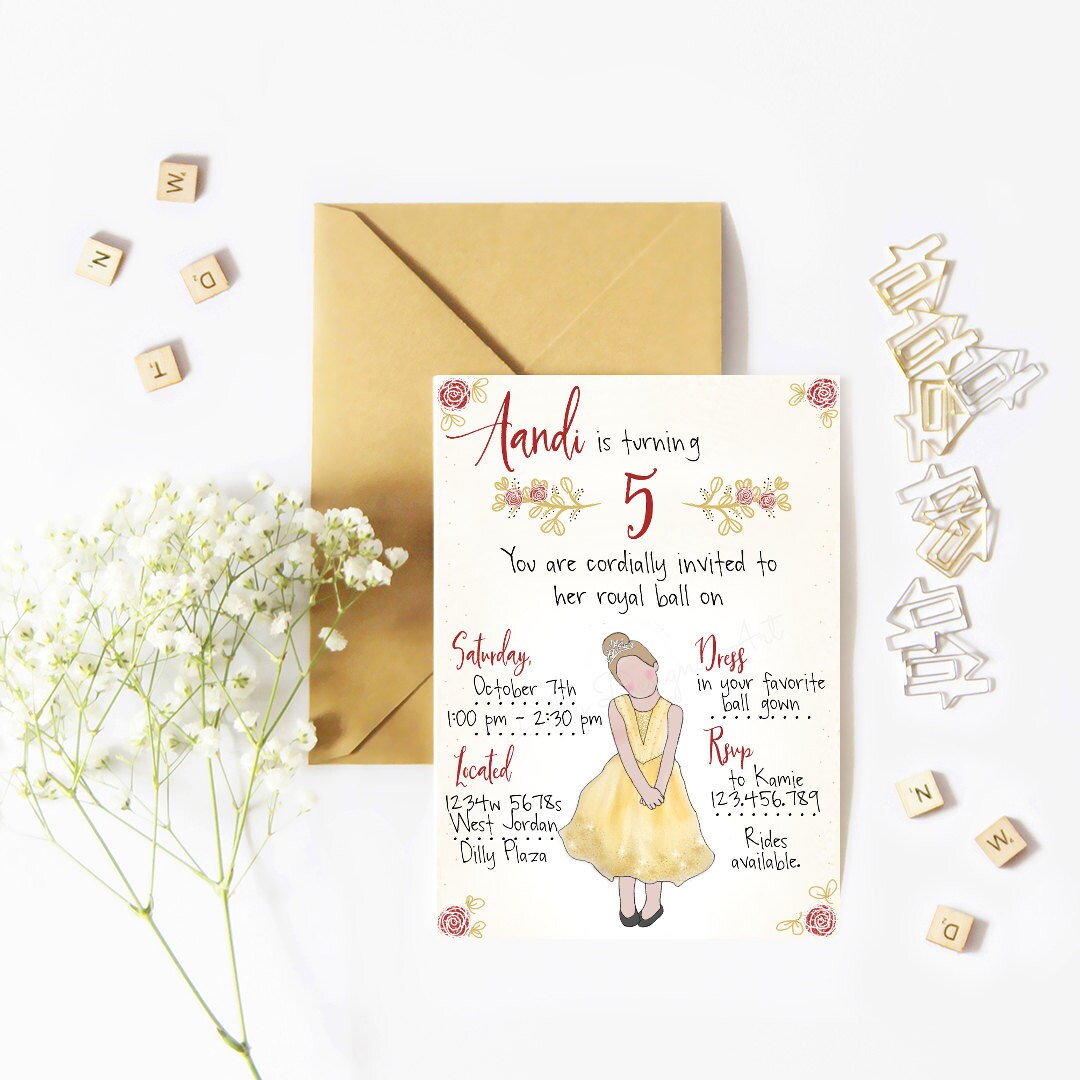 W
N
D
T
Aandi is turning
5
You are cordially invited to
her royal ball on
Saturday,
October 7th
1:00 pm - 2:30 pm
Located
1234w 5678s
West Jordan
Dilly Plaza
Dress
in your favorite
ball gown
Rsvp
to Kamie
123.456.789
Rides
available.
N
W
D